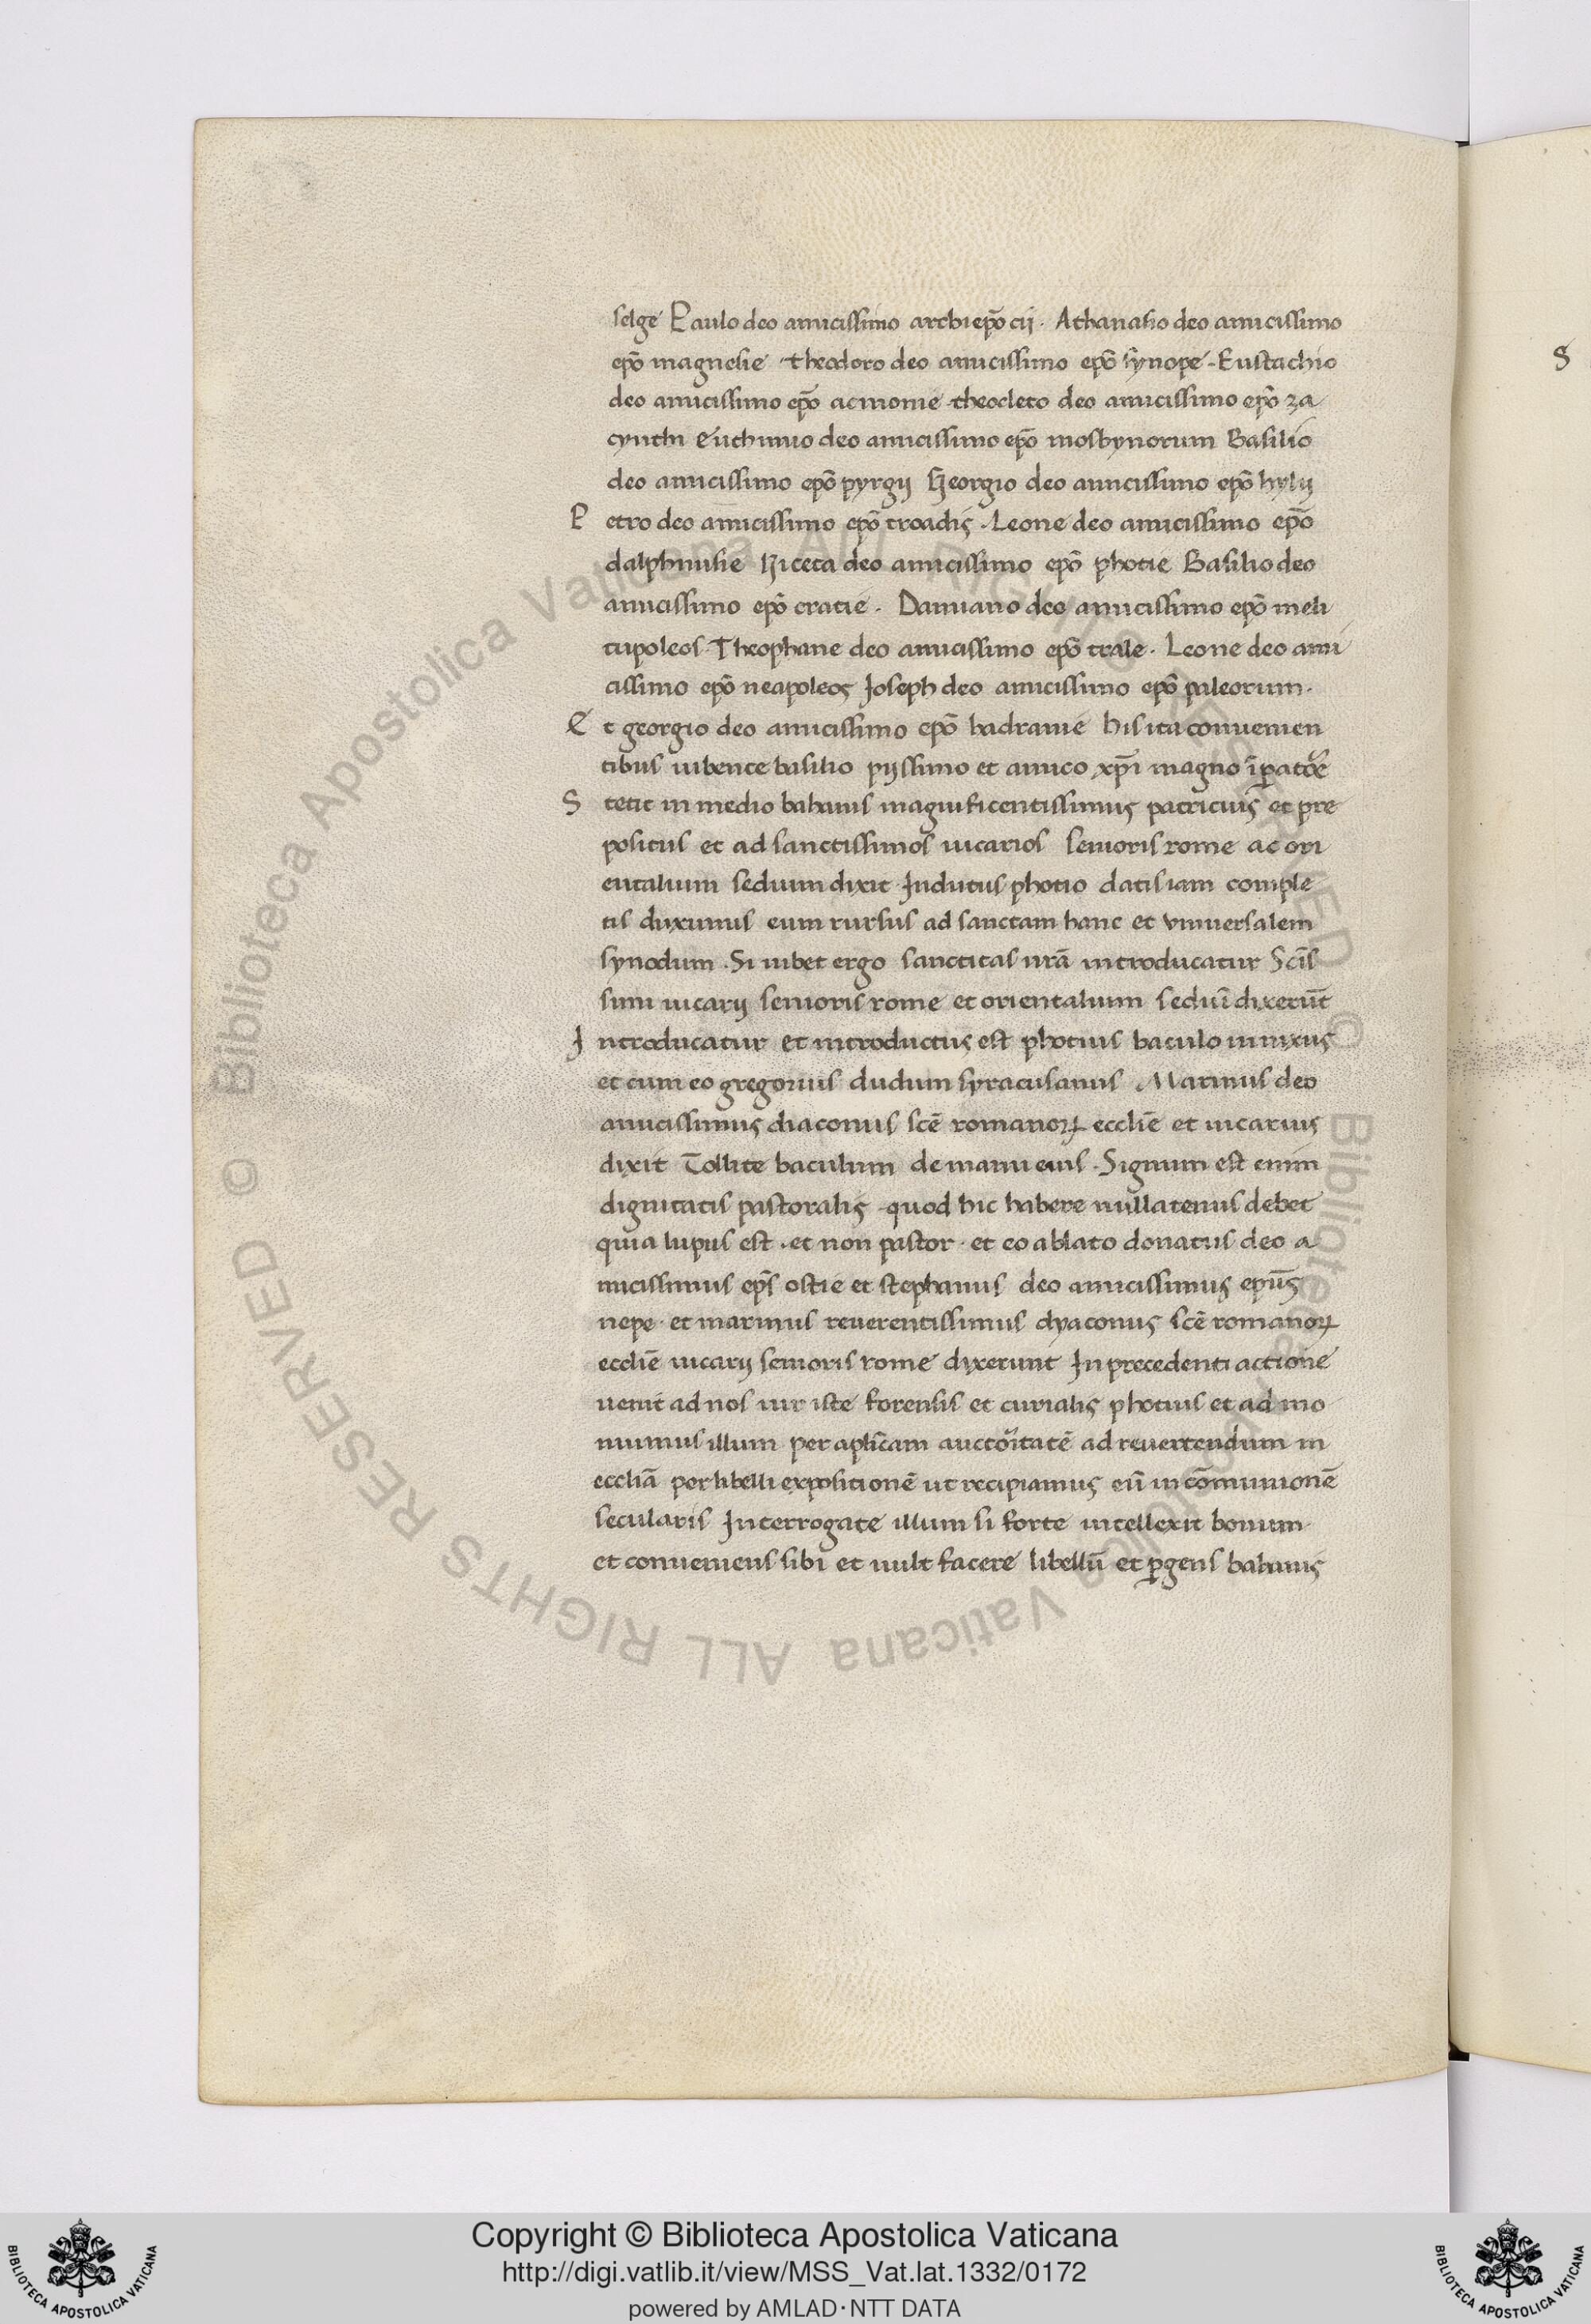 selge Paulo deo amicissimo archiep̄o cij · Athanasio deo amicissimo
ep̄o magnesie · theodoro deo amicissimo ep̄o synope · Eustachio
deo amicissimo ep̄o acmonie theocleto deo amicissimo ep̄o za
cynthi Euthimio deo amicissimo ep̄o mosbynorum Basilio
deo amicissimo ep̄o pyrgij Georgio deo amicissimo ep̄o hylij
Petro deo amicissimo ep̄o troadis · Leone deo amicissimo ep̄o
dalphnusie Niceta deo amicissimo ep̄o photie Basilio deo
amicissimo ep̄o cratie · Damiano deo amicissimo ep̄o meli
tupoleos · Theophane deo amicissimo ep̄o trale · Leone deo ami
cissimo ep̄o neapoleos Joseph deo amicissimo ep̄o paleorum ·
Et georgio deo amicissimo ep̄o hadranie his ita conuenien
tibus iubente basilio pijssimo et amico xp̄i magno īp̄atore
Stetit in medio bahanis magnificentissimus patricius et pre
positus et ad sanctissimos uicarios senioris rome ac ori
entalium sedium dixit Indutus photio datis iam comple
tis duximus eum rursus ad sanctam hanc et vniuersalem
synodum · Si iubet ergo sanctitas ur̄a introducatur Scīs
simi uicarij senioris rome et orientalium sediū dixerūt
Introducatur et introductus est photius baculo innixus
et cum eo gregorius dudum syracusanus Marinus deo
amicissimus diaconus scē romanoꝝ ecclīe et uicarius
dixit Tollite baculum de manu eius · Signum est enim
dignitatis pastoralis · quod hic habere nullatenus debet
quia lupus est · et non pastor · et eo ablato donatus deo a
micissimus ep̄s ostie et stephanus deo amicissimus epūs
nepe · et marinus reuerentissimus dyaconus scē romanoꝝ
ecclīe uicarij senioris rome dixerunt In precedenti actione
uenit ad nos uir iste forensis et curialis photius et ad mo
nuimus illum per aplīcam auctoritatē ad reuertendum in
eccliā per libelli expositionē ut recipiamus eū in cōmunionē
secularis Interrogate illum si forte intellexit bonum
et conueniens sibi et uult facere libellū et p̄gens bahanis
S
© Biblioteca Apostolica Vaticana ALL RIGHTS RESERVED © Biblioteca Apostolica Vaticana ALL RIGHTS RESERVED
Copyright © Biblioteca Apostolica Vaticana
http://digi.vatlib.it/view/MSS_Vat.lat.1332/0172
powered by AMLAD·NTT DATA
BIBLIOTECA APOSTOLICA VATICANA
BIBLIOTECA APOSTOLICA VATICANA